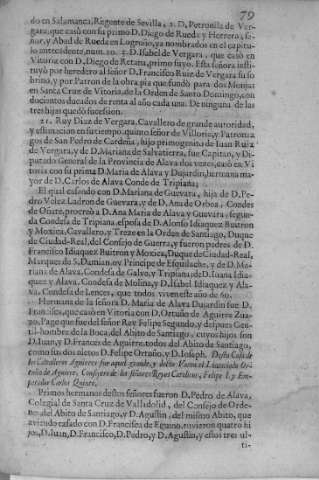 79
do en Salamanca, Regente de Sevilla, 2. D. Petronila de Ver-
gara, que casò con su primo D. Diego de Rueda y Herrero, se-
ñor, y Abad de Rueda en Logroño, ya nombrados en el capitu-
lo antecedente, num. 20. 3. D. Isabel de Vergara, que casò en
Vitoria con D. Diego de Retana, primo suyo. Esta señora insti-
tuyò por heredero al señor D. Francisco Ruiz de Vergara su so
brino, y por Patron de la obra pia que fundò para dos Monjas
en Santa Cruz de Vitoria, de la Orden de Santo Domingo, con
ducientos ducados de renta al año cada una. De ninguna de las
tres hijas quedò sucession.
21. Ruy Diaz de Vergara, Cavallero de grande autoridad,
y estimacion en su tiempo, quinto señor de Villoria, y Patronaz
gos de San Pedro de Cardeña, hijo primogenito de Iuan Ruiz
de Vergara, y de D. Mariana de Salvatierra, fue Capitan, y Di-
putado General de la Provincia de Alava dos vezes, casò en Vi
toria con su prima D. Maria de Alava y Dujardin, hermana ma-
yor de D. Carlos de Alava Conde de Tripiana;
El qual casando con D. Mariana de Guevara, hija de D. Pe-
dro Velez Ladron de Guevara, y de D. Ana de Orboa, Condes
de Oñate, procreò a D. Ana Maria de Alava y Guevara, segun-
da Condesa de Tripiana, esposa de D. Alonso Idiaquez Buitron
y Moxica, Cavallero, y Treze en la Orden de Santiago, Duque
de Ciudad-Real, del Consejo de Guerra, y fueron padres de D.
Francisco Idiaquez Buitron y Moxica, Duque de Ciudad-Real,
Marques de S. Damian, oy Principe de Esquilache, y de D. Me-
riana de Alava, Condesa de Galvo, y Tripiana, de D. Iuana Idia-
quez y Alava, Condesa de Molina, y D. Isabel Idiaquez y Ala-
va, Condesa de Lences, que todos viven este año de 60.
Hermana de la señora D. Maria de Alava Dujardin fue D.
Francisca, que casò en Vitoria con D. Ortuño de Aguirre Zua-
zo, Page que fue del señor Rey Felipe Segundo, y despues Gen-
til-hombre de la Boca, del Abito de Santiago, cuyos hijos son
D. Iuan, y D. Francés de Aguirre, todos del Abito de Santiago,
como sus dos nietos D. Felipe Ortuño, y D. Ioseph. Desta Casa de
los Cavalleros Aguirres fue aquel grande, y docto Varon el Licenciado Or-
tuño de Aguirre, Consejero de los señores Reyes Catolicos, Felipe I. y Em-
perador Carlos Quinto.
Primos hermanos destos señores fueron D. Pedro de Alava,
Colegial de Santa Cruz de Valladolid, del Consejo de Orde-
nes, del Abito de Santiago, y D. Agustin, del mismo Abito, que
aviendo casado con D. Francisca de Eguino, tuvieron quatro hi
jos, D. Iuan, D. Francisco, D. Pedro, y D. Agustin, y estos tres ul-
ti-